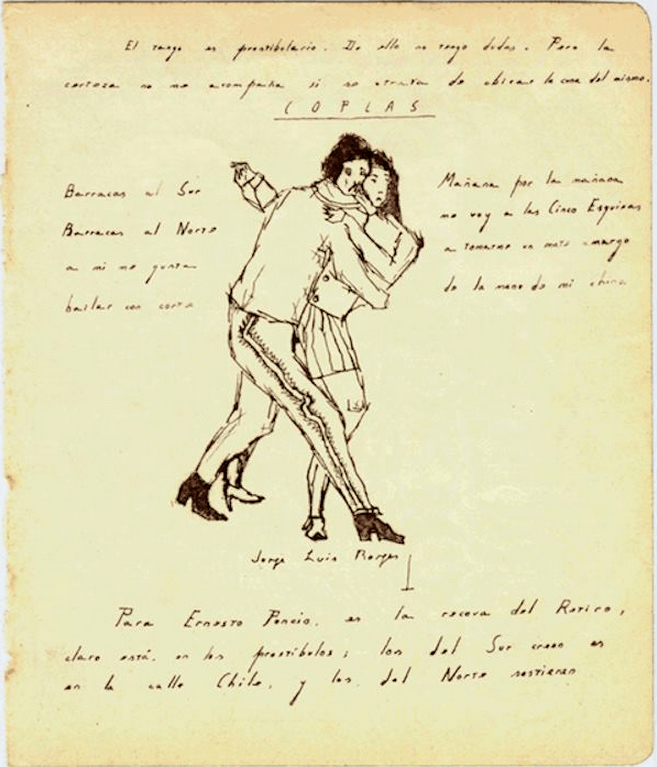 El tango es prostibulario. De ello no tengo dudas. Pero la
certeza no me acompaña si se trata de ubicar la cuna del mismo.
COPLAS
Barracas al Sur
Barracas al Norte
a mi me gusta
bailar con corte
Mañana por la mañana
me voy a las Cinco Esquinas
a tomarme un mate amargo
de la mano de mi china
Jorge Luis Borges
Para Ernesto Poncio, en la recova del Retiro,
claro está, en los prostibulos; los del Sur creen es
en la calle Chile, y los del Norte sostienen